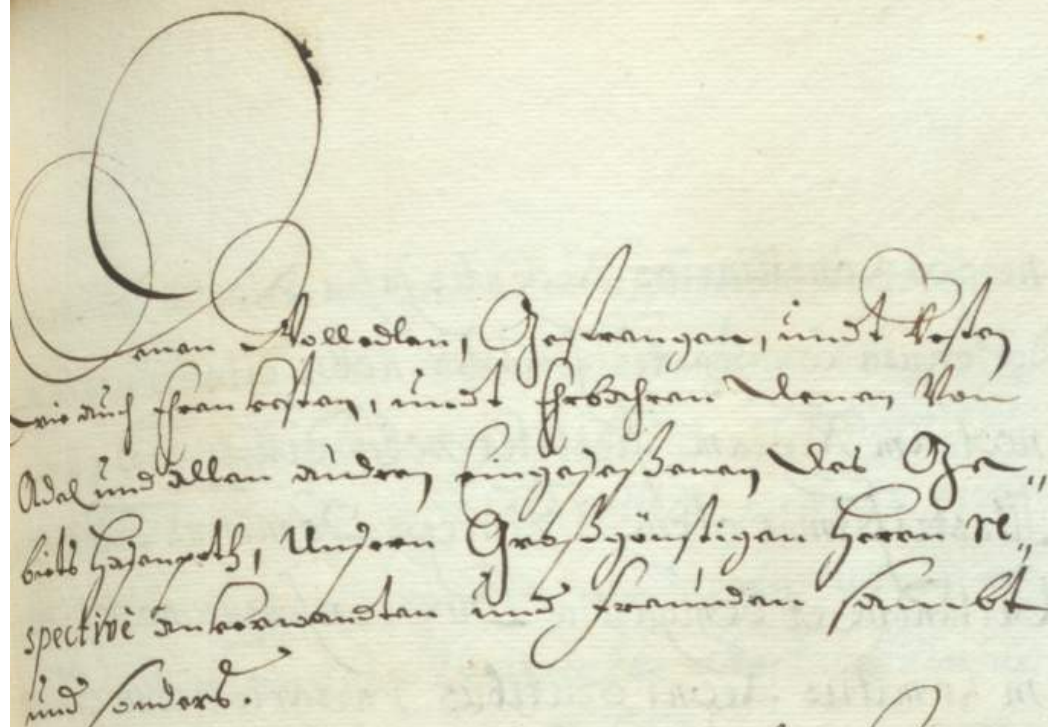 Denen Wolledlen, Gestrengen, undt Vesten
wie auch Ehrenvesten, undt Ehrbahren denen Von
Adel und allen andren Eingeseßenen des Ge„
biets Hasenpoth, Unsern Großgünstigen Herrn re„
spectivè anverwandten und freunden sambt
und sonders.